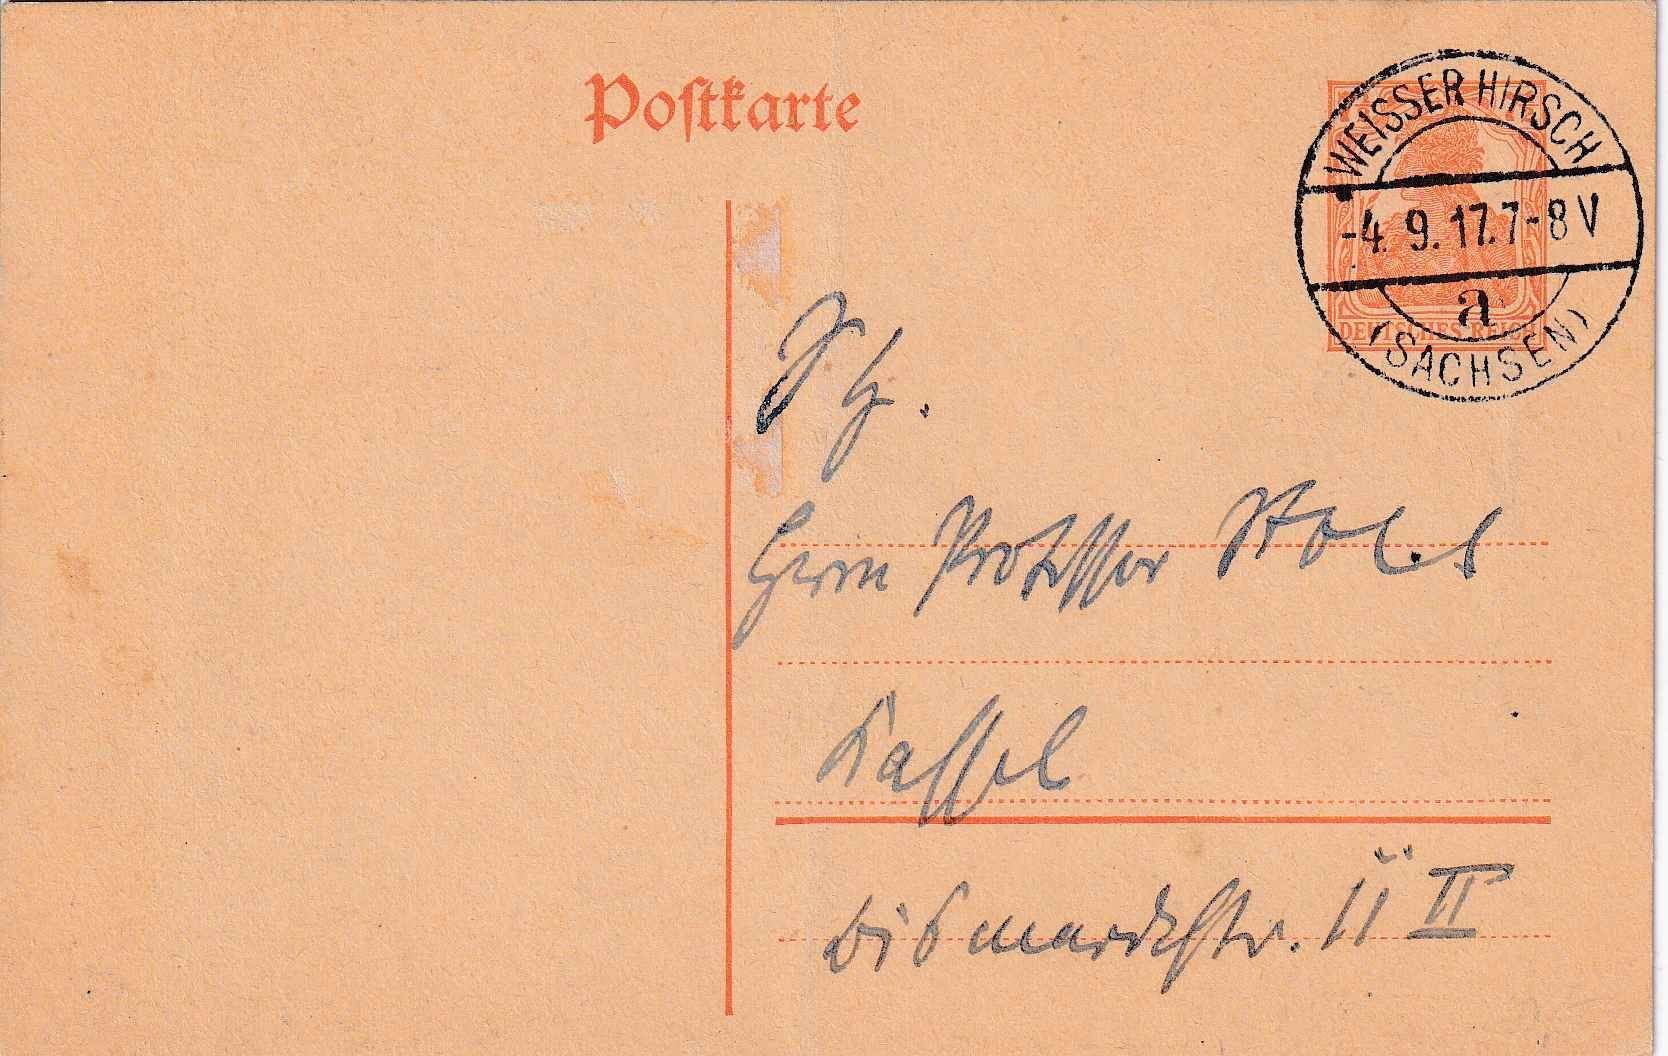 Postkarte
WEISSER HIRSCH
-4. 9. 17. 7-8 V
a
(SACHSEN)
DEUTSCHES REICH
Herrn Professor
Kassel
Bismarckstr. 11 II